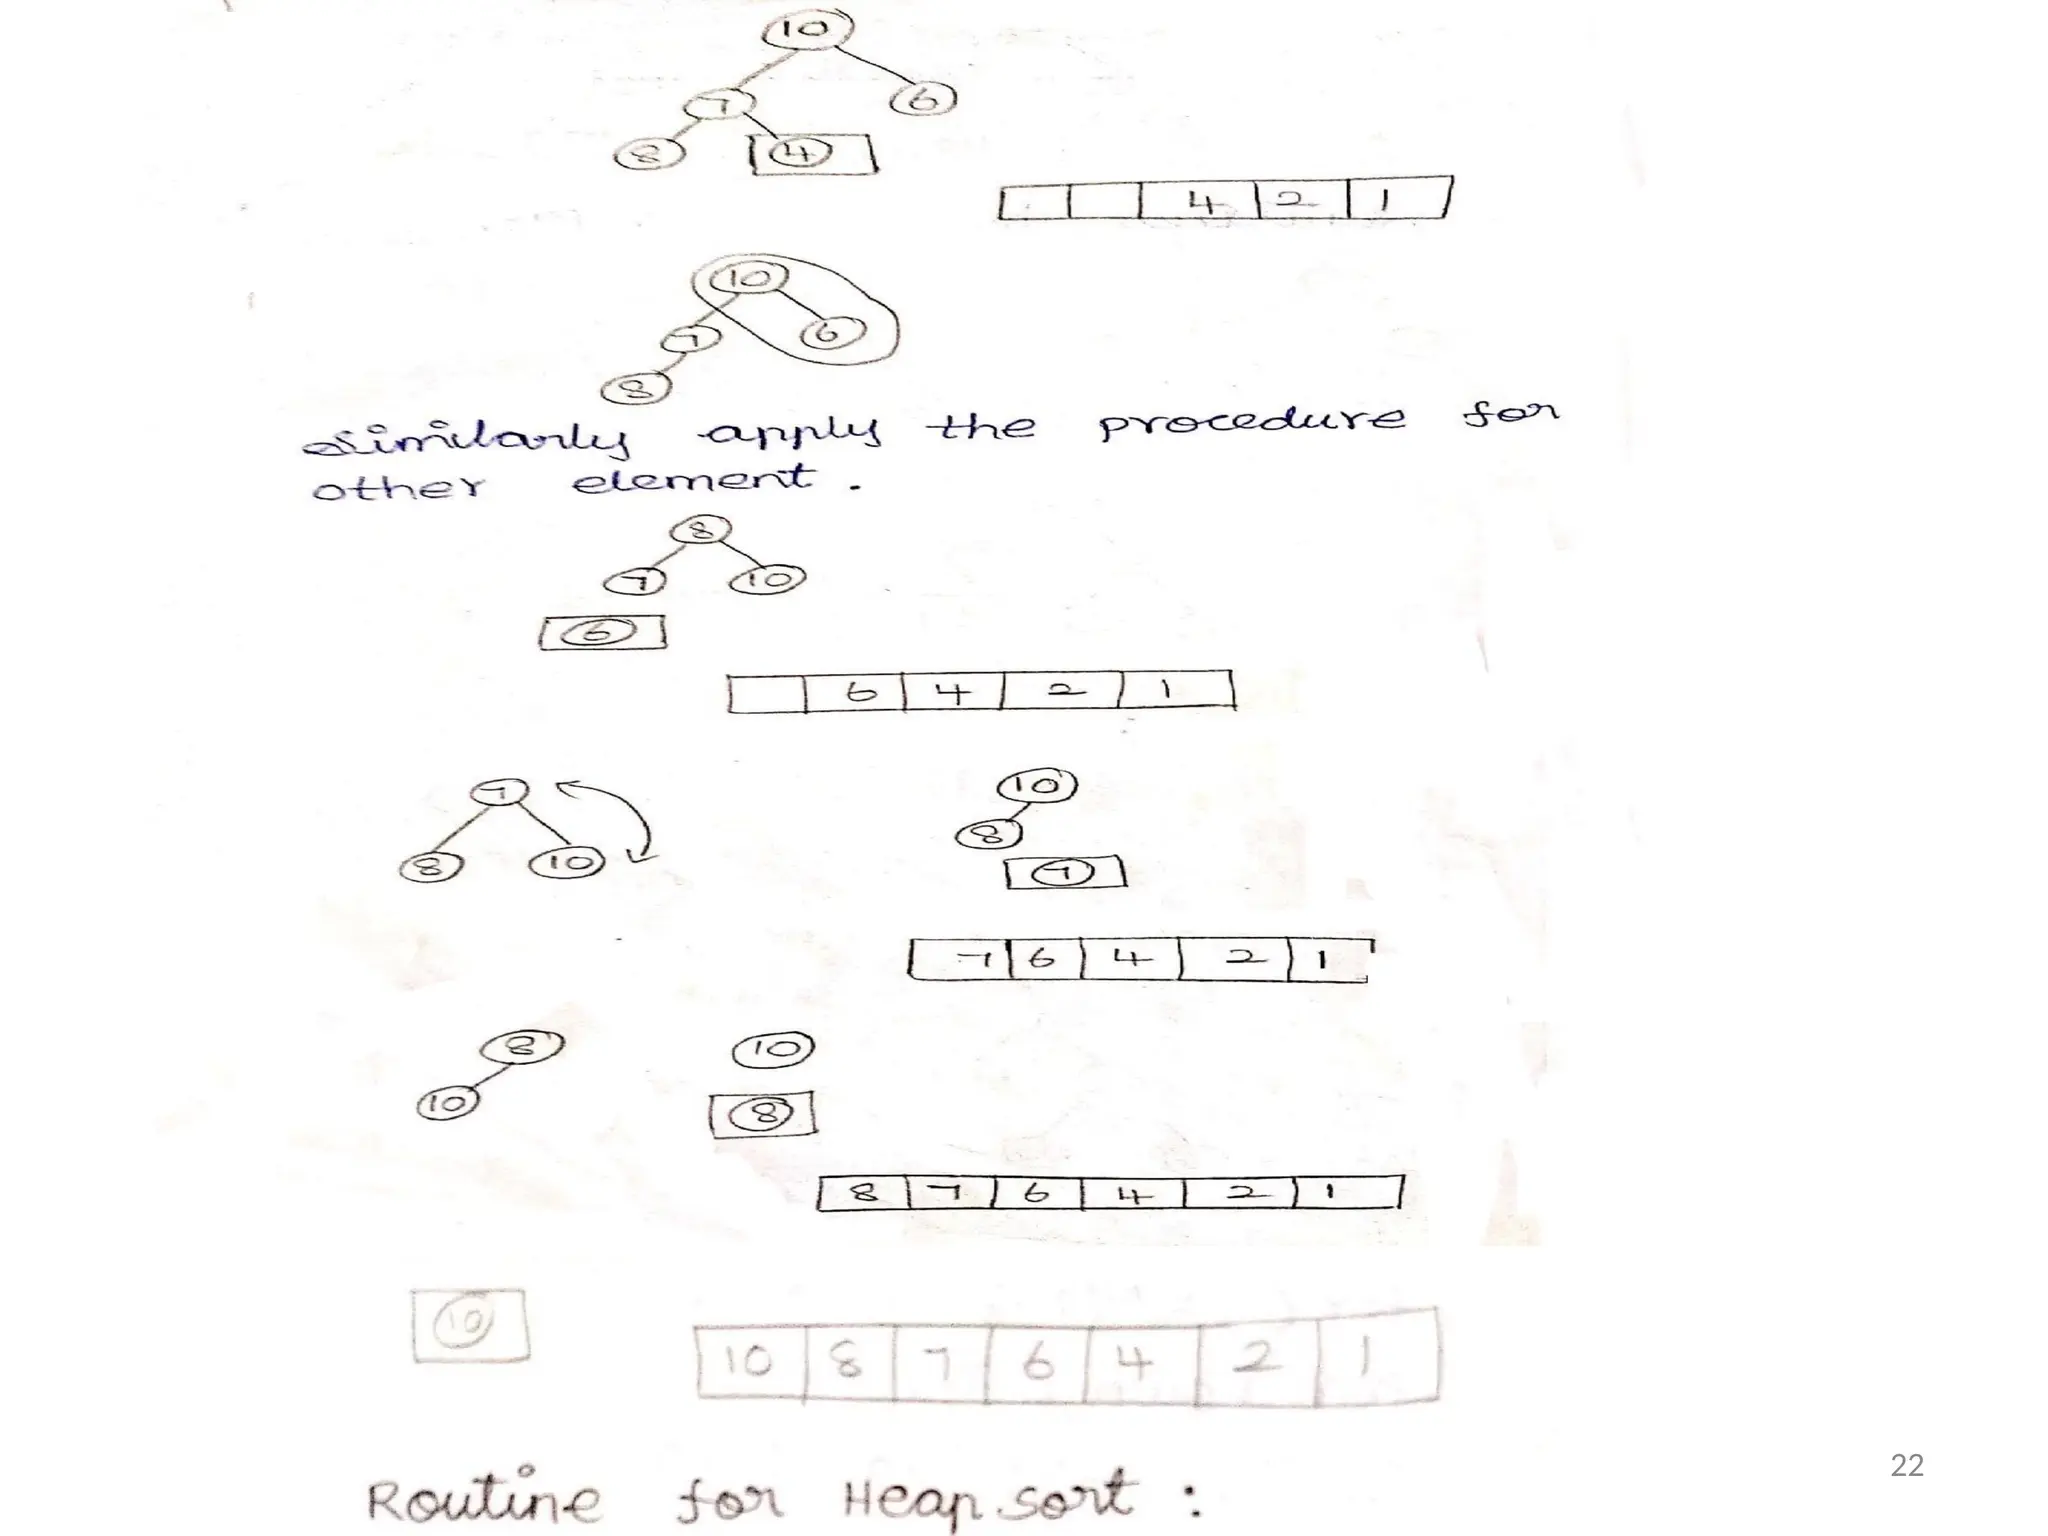 10
7 6
8 4
4 2 1
10
7 6
8
Similarly apply the procedure for
other element.
8
7 10
6
6 4 2 1
7 10
8 10 8
7
7 6 4 2 1
8 10
10 8
8 7 6 4 2 1
10
10 8 7 6 4 2 1
22
Routine for Heap sort :